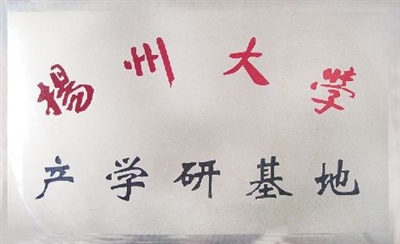 揚州大学
产学研基地